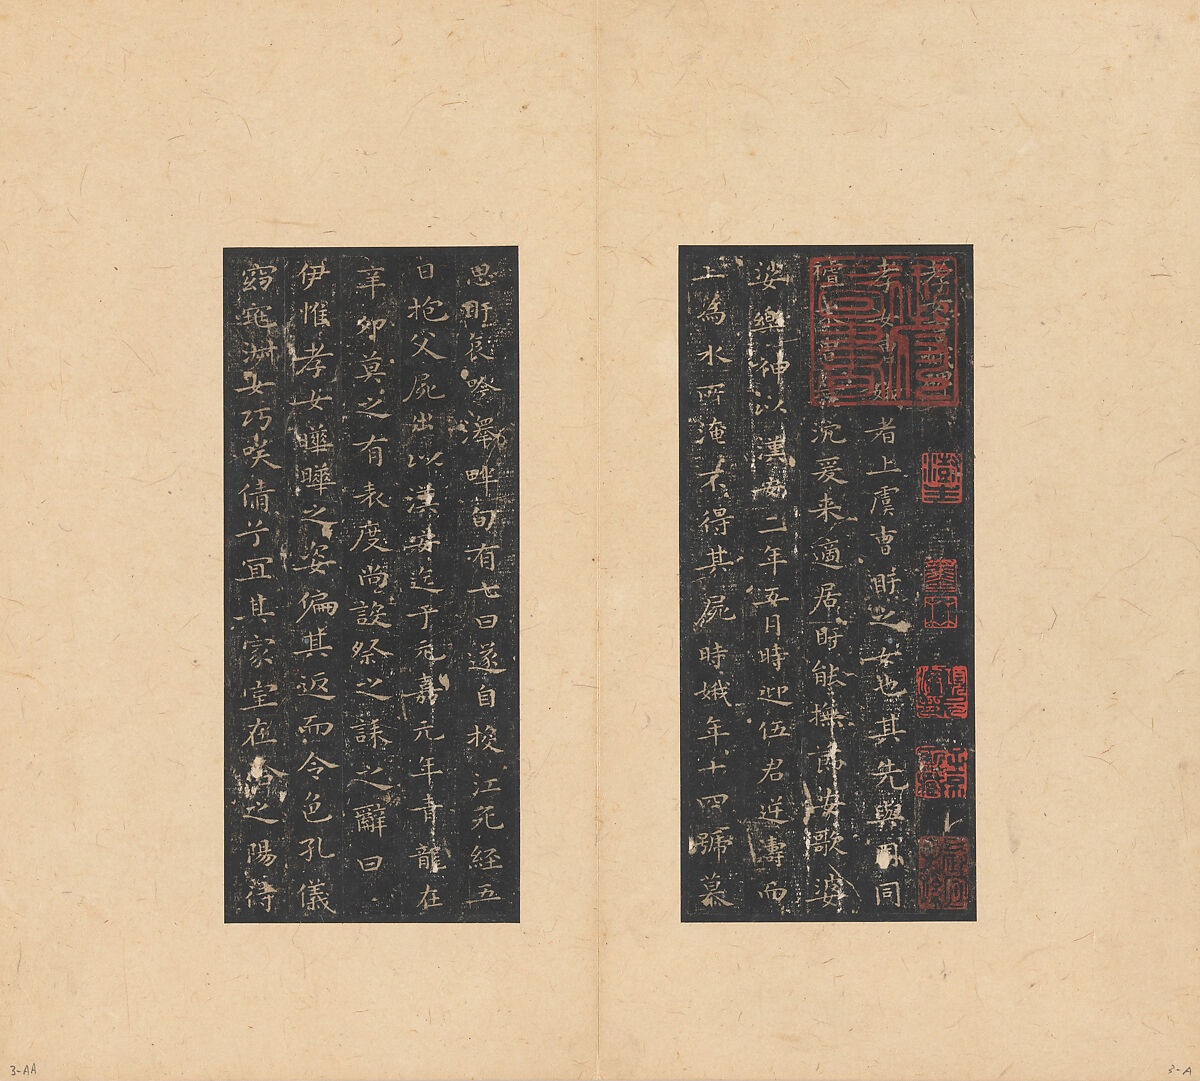 孝女曹娥碑
孝女曹娥者上虞曹盱之女也其先與周同
沉爰来適居盱能撫節安歌婆
娑樂神以漢安二年五月時迎伍君逆濤而
上為水所淹不得其屍時娥年十四號慕
思盱哀吟澤畔旬有七日遂自投江死経五
日抱父屍出以漢安迄于元嘉元年青龍在
辛卯莫之有表度尚設祭之誄之辭曰
伊惟孝女曄曄之姿偏其返而令色孔儀
窈窕淑女巧笑倩兮宜其家室在洽之陽待
3-A
3-AA